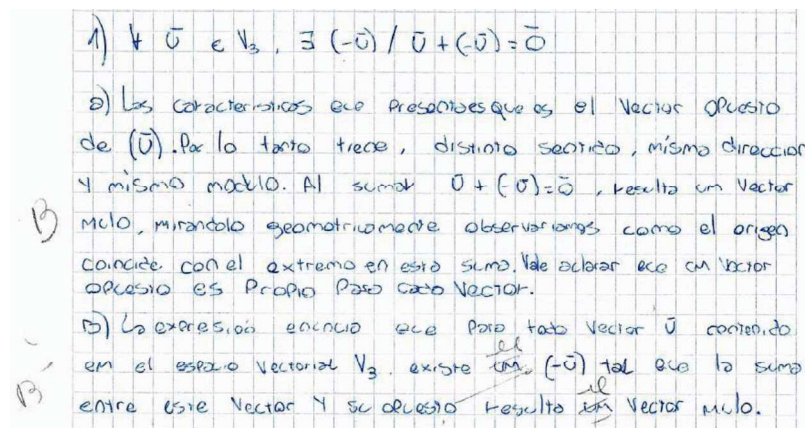 1) ∀ Ū ∈ V₃, ∃ (-Ū) / Ū + (-Ū) = Ō
a) Las características que presenta es que es el vector opuesto
de (Ū). Por lo tanto tiene, distinto sentido, misma dirección
y mismo modulo. Al sumar Ū + (-Ū) = ō, resulta un vector
nulo, mirandolo geometricamente observariamos como el origen
B
coincide con el extremo en esta suma. Vale aclarar que un vector
opuesto es propio para cada vector.
b) La expresión enuncia que para todo vector Ū contenido
el
em el espacio vectorial V₃ existe un (-Ū) tal que la suma
B
el
entre este vector y su opuesto resulta un vector nulo.